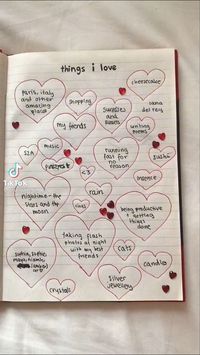 things i love
Paris, italy
and other
amazing
places
shopping
cheesecake
my friends
sunrises
and
sunsets
lana
del rey
writing
poems
music
sza
pinterest
<3
running
fast for
no
reason
sushi
incense
nighttime - the
stars and the
moon
rain
being productive
+ getting
things
done
taking flash
photos at night
with my best
friends
cats
candles
art
silver
jewellery
crystals
TikTok